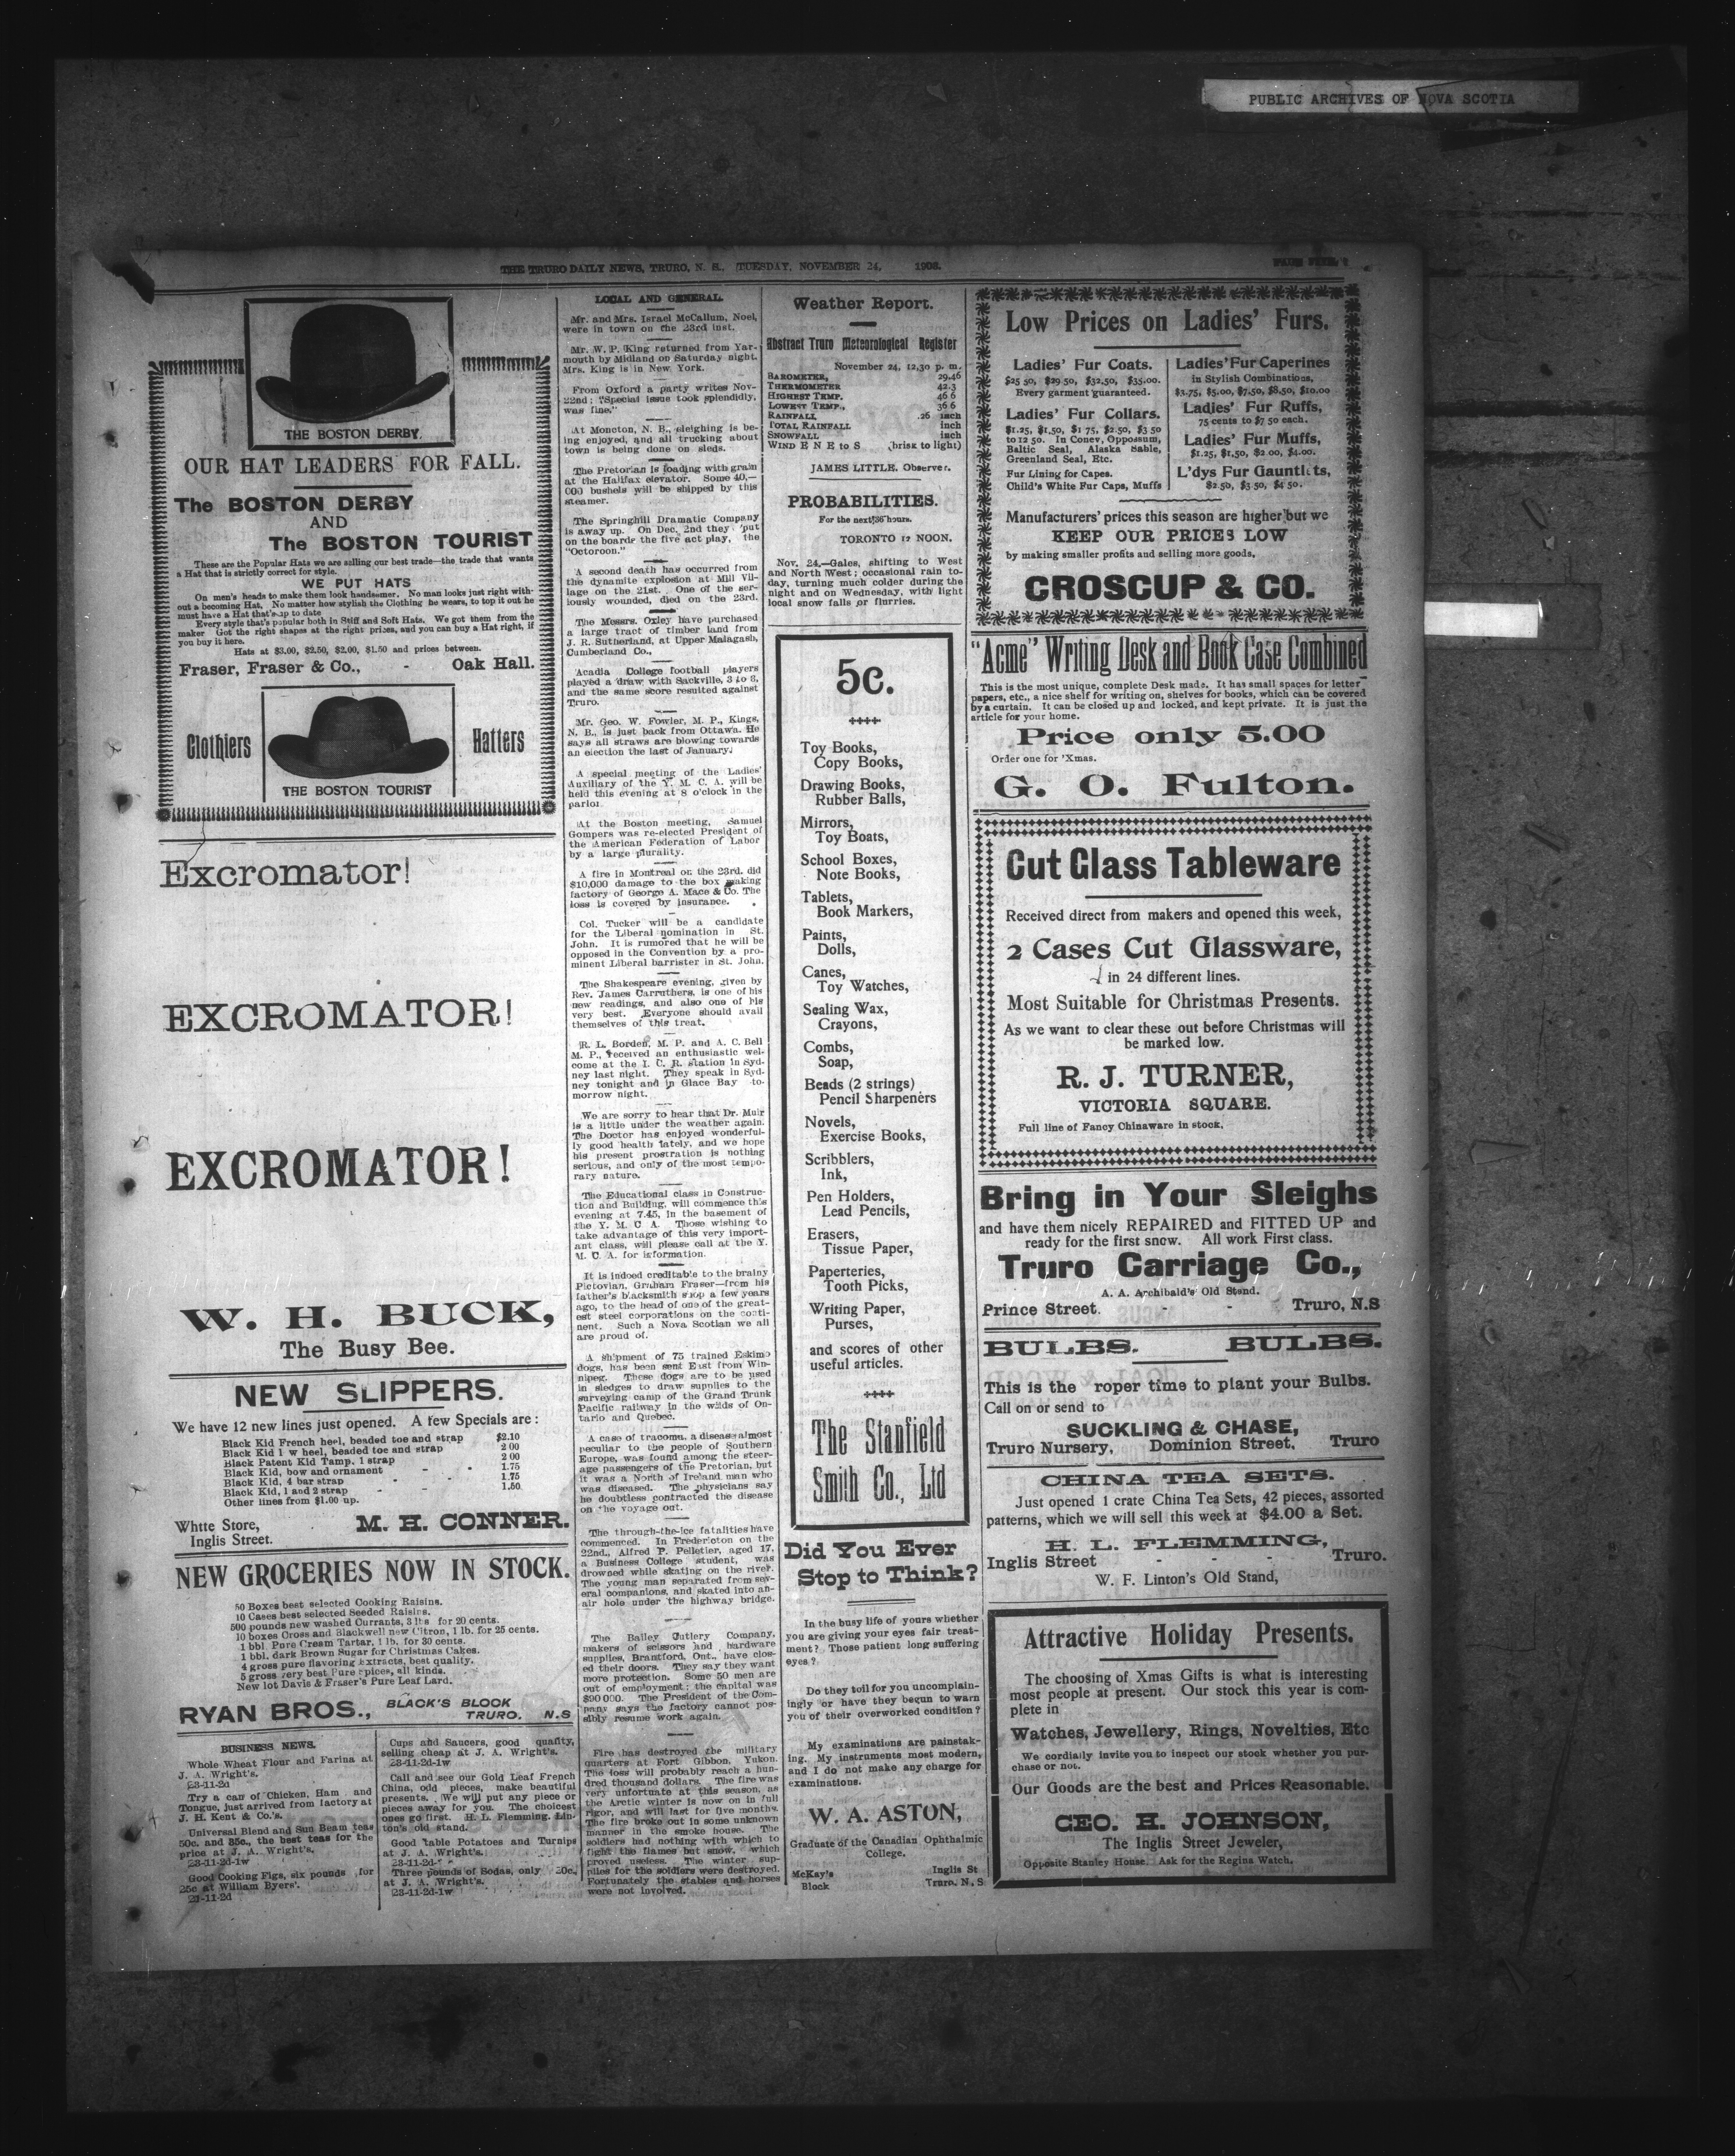 PUBLIC ARCHIVES OF NOVA SCOTIA
THE TRURO DAILY NEWS, TRURO, N. S., TUESDAY, NOVEMBER 24,
THE BOSTON DERBY.
OUR HAT LEADERS FOR FALL.
The BOSTON DERBY
AND
The BOSTON TOURIST
These are the Popular Hats we are selling our best trade—the trade that wants
a Hat that is strictly correct for style.
WE PUT HATS
On men's heads to make them look handsomer. No man looks just right with-
out a becoming Hat. No matter how stylish the Clothing he wears, to top it out he
must have a Hat that's up to date
Every style that's popular both in Stiff and Soft Hats. We got them from the
maker Got the right shapes at the right prices, and you can buy a Hat right, if
you buy it here.
Hats at $3.00, $2.50, $2.00, $1.50 and prices between.
Fraser, Fraser & Co., - Oak Hall.
Clothiers
Hatters
THE BOSTON TOURIST
Excromator!
EXCROMATOR!
EXCROMATOR!
W. H. BUCK,
The Busy Bee.
NEW SLIPPERS.
We have 12 new lines just opened. A few Specials are:
Black Kid French heel, beaded toe and strap $2.10
Black Kid l w heel, beaded toe and strap 2 00
Black Patent Kid Tamp, 1 strap 2 00
Black Kid, bow and ornament - - 1.75
Black Kid, 4 bar strap - - 1.75
Black Kid, 1 and 2 strap - - 1.50
Other lines from $1.00 up.
Whtte Store,
Inglis Street.
M. H. CONNER.
NEW GROCERIES NOW IN STOCK.
50 Boxes best selected Cooking Raisins.
10 Cases best selected Seeded Raisins.
500 pounds new washed Currants, 3 lbs for 20 cents.
10 boxes Cross and Blackwell new Citron, 1 lb. for 25 cents.
1 bbl. Pure Cream Tartar, 1 lb. for 30 cents.
1 bbl. dark Brown Sugar for Christmas Cakes.
4 gross pure flavoring Extracts, best quality.
5 gross very best Pure Spices, all kinds.
New lot Davis & Fraser's Pure Leaf Lard.
RYAN BROS., BLACK'S BLOCK
TRURO. N.S
BUSINESS NEWS.
Whole Wheat Flour and Farina at
J. A. Wright's.
23-11-2d
Try a can of Chicken, Ham and
Tongue, just arrived from factory at
J. H. Kent & Co.'s.
Universal Blend and Sun Beam teas
50c. and 35c., the best teas for the
price at J. A. Wright's.
23-11-2d-1w
Good Cooking Figs, six pounds for
25c at William Byers'.
23-11-2d
Cups and Saucers, good quality,
selling cheap at J. A. Wright's.
23-11-2d-1w
Call and see our Gold Leaf French
China, odd pieces, make beautiful
presents. We will put any piece or
pieces away for you. The choicest
ones go first. H. L. Flemming, Lin-
ton's old stand.
Good table Potatoes and Turnips
at J. A. Wright's.
23-11-2d-
Three pounds of Sodas, only 20c.
at J. A. Wright's.
23-11-2d-1w
LOCAL AND GENERAL.
Mr. and Mrs. Israel McCallum, Noel,
were in town on the 23rd inst.
Mr. W. P. King returned from Yar-
mouth by Midland on Saturday night.
Mrs. King is in New York.
From Oxford a party writes Nov-
22nd: "Special issue took splendidly,
was fine."
At Moncton, N. B., sleighing is be-
ing enjoyed, and all trucking about
town is being done on sleds.
The Pretorian is loading with grain
at the Halifax elevator. Some 40,—
000 bushels will be shipped by this
steamer.
The Springhill Dramatic Company
is away up. On Dec. 2nd they put
on the boards the five act play, the
"Octoroon."
A second death has occurred from
the dynamite explosion at Mill Vil-
lage on the 21st. One of the ser-
iously wounded, died on the 23rd.
The Messrs. Oxley have purchased
a large tract of timber land from
J. R. Sutherland, at Upper Malagash,
Cumberland Co.,
Acadia College football players
played a draw with Sackville, 3 to 3,
and the same score resulted against
Truro.
Mr. Geo. W. Fowler, M. P., Kings,
N. B., is just back from Ottawa. He
says all straws are blowing towards
an election the last of January.
A special meeting of the Ladies'
Auxiliary of the Y. M. C. A. will be
held this evening at 8 o'clock in the
parlor
At the Boston meeting, Samuel
Gompers was re-elected President of
the American Federation of Labor
by a large plurality.
A fire in Montreal on the 23rd. did
$10,000 damage to the box making
factory of George A. Mace & Co. The
loss is covered by insurance.
Col. Tucker will be a candidate
for the Liberal nomination in St.
John. It is rumored that he will be
opposed in the Convention by a pro-
minent Liberal barrister in St. John.
The Shakespeare evening, given by
Rev. James Carruthers, is one of his
new readings, and also one of his
very best. Everyone should avail
themselves of this treat.
R. L. Borden, M. P. and A. C. Bell
M. P., received an enthusiastic wel-
come at the I. C. R. station in Syd-
ney last night. They speak in Syd-
ney tonight and in Glace Bay to-
morrow night.
We are sorry to hear that Dr. Muir
is a little under the weather again.
The Doctor has enjoyed wonderful-
ly good health lately, and we hope
his present prostration is nothing
serious, and only of the most tempo-
rary nature.
The Educational class in Construc-
tion and Building, will commence this
evening at 7.45, in the basement of
the Y. M. C A. Those wishing to
take advantage of this very import-
ant class, will please call at the Y.
M. C. A. for information.
It is indeed creditable to the brainy
Pictovian, Graham Fraser—from his
father's blacksmith shop a few years
ago, to the head of one of the great-
est steel corporations on the conti-
nent. Such a Nova Scotian we all
are proud of.
A shipment of 75 trained Eskimo
dogs, has been sent East from Win-
nipeg. These dogs are to be used
in sledges to draw supplies to the
surveying camp of the Grand Trunk
Pacific railway in the wilds of On-
tario and Quebec.
A case of tracoma, a disease almost
peculiar to the people of Southern
Europe, was found among the steer-
age passengers of the Pretorian, but
it was a North of Ireland man who
was diseased. The physicians say
he doubtless contracted the disease
on the voyage out.
The through-the-ice fatalities have
commenced. In Fredericton on the
22nd., Alfred P. Pelletier, aged 17,
a Business College student, was
drowned while skating on the river.
The young man separated from sev-
eral companions, and skated into an-
air hole under the highway bridge.
The Bailey Cutlery Company,
makers of scissors and hardware
supplies, Brantford, Ont., have clos-
ed their doors. They say they want
more protection. Some 50 men are
out of employment; the capital was
$90 000. The President of the Com-
pany says the factory cannot pos-
sibly resume work again.
Fire has destroyed the military
quarters at Fort Gibbon, Yukon.
The loss will probably reach a hun-
dred thousand dollars. The fire was
very unfortunate at this season, as
the Arctic winter is now on in full
rigor, and will last for five months.
The fire broke out in some unknown
manner in the smoke house. The
soldiers had nothing with which to
fight the flames but snow, which
proved useless. The winter sup-
plies for the soldiers were destroyed.
Fortunately the stables and horses
were not involved.
Weather Report.
Abstract Truro Meteorological Register
November 24, 12.30 p. m.
BAROMETER, 29.46
THERMOMETER 42.3
HIGHEST TEMP. 46 6
LOWEST TEMP., 36 6
RAINFALL .26 inch
TOTAL RAINFALL inch
SNOWFALL inch
WIND E N E to S (brisk to light)
JAMES LITTLE, Observer.
PROBABILITIES.
For the next 36 hours.
TORONTO 12 NOON.
Nov. 24.—Gales, shifting to West
and North West; occasional rain to-
day, turning much colder during the
night and on Wednesday, with light
local snow falls or flurries.
5c.
Toy Books,
Copy Books,
Drawing Books,
Rubber Balls,
Mirrors,
Toy Boats,
School Boxes,
Note Books,
Tablets,
Book Markers,
Paints,
Dolls,
Canes,
Toy Watches,
Sealing Wax,
Crayons,
Combs,
Soap,
Beads (2 strings)
Pencil Sharpeners
Novels,
Exercise Books,
Scribblers,
Ink,
Pen Holders,
Lead Pencils,
Erasers,
Tissue Paper,
Paperteries,
Tooth Picks,
Writing Paper,
Purses,
and scores of other
useful articles.
The Stanfield
Smith Co., Ltd
Did You Ever
Stop to Think?
In the busy life of yours whether
you are giving your eyes fair treat-
ment? Those patient long suffering
eyes?
Do they toil for you uncomplain-
ingly or have they begun to warn
you of their overworked condition?
My examinations are painstak-
ing. My instruments most modern,
and I do not make any charge for
examinations.
W. A. ASTON,
Graduate of the Canadian Ophthalmic
College.
McKay's
Block
Inglis St
Truro, N. S
Low Prices on Ladies' Furs.
Ladies' Fur Coats.
$25 50, $29 50, $32.50, $35.00.
Every garment guaranteed.
Ladies' Fur Collars.
$1.25, $1.50, $1 75, $2.50, $3 50
to 12 50. In Coney, Oppossum,
Baltic Seal, Alaska Sable,
Greenland Seal, Etc.
Fur Lining for Capes.
Child's White Fur Caps, Muffs
Ladies' Fur Caperines
in Stylish Combinations,
$3.75, $5.00, $7.50, $8.50, $10.00
Ladies' Fur Ruffs,
75 cents to $7 50 each.
Ladies' Fur Muffs,
$1.25, $1.50, $2.00, $4.00.
L'dys Fur Gauntlets,
$2 50, $3 50, $4 50.
Manufacturers' prices this season are higher but we
KEEP OUR PRICES LOW
by making smaller profits and selling more goods.
CROSCUP & CO.
"Acme" Writing Desk and Book Case Combined
This is the most unique, complete Desk made. It has small spaces for letter
papers, etc., a nice shelf for writing on, shelves for books, which can be covered
by a curtain. It can be closed up and locked, and kept private. It is just the
article for your home.
Price only 5.00
Order one for 'Xmas.
G. O. Fulton.
Cut Glass Tableware
Received direct from makers and opened this week,
2 Cases Cut Glassware,
in 24 different lines.
Most Suitable for Christmas Presents.
As we want to clear these out before Christmas will
be marked low.
R. J. TURNER,
VICTORIA SQUARE.
Full line of Fancy Chinaware in stock.
Bring in Your Sleighs
and have them nicely REPAIRED and FITTED UP and
ready for the first snow. All work First class.
Truro Carriage Co.,
A. A. Archibald's Old Stand.
Prince Street. - - Truro, N.S
BULBS. BULBS.
This is the roper time to plant your Bulbs.
Call on or send to
SUCKLING & CHASE,
Truro Nursery, Dominion Street, Truro
CHINA TEA SETS.
Just opened 1 crate China Tea Sets, 42 pieces, assorted
patterns, which we will sell this week at $4.00 a Set.
H. L. FLEMMING,
Inglis Street - - - Truro.
W. F. Linton's Old Stand,
Attractive Holiday Presents.
The choosing of Xmas Gifts is what is interesting
most people at present. Our stock this year is com-
plete in
Watches, Jewellery, Rings, Novelties, Etc
We cordially invite you to inspect our stock whether you pur-
chase or not.
Our Goods are the best and Prices Reasonable.
GEO. H. JOHNSON,
The Inglis Street Jeweler,
Opposite Stanley House. Ask for the Regina Watch.